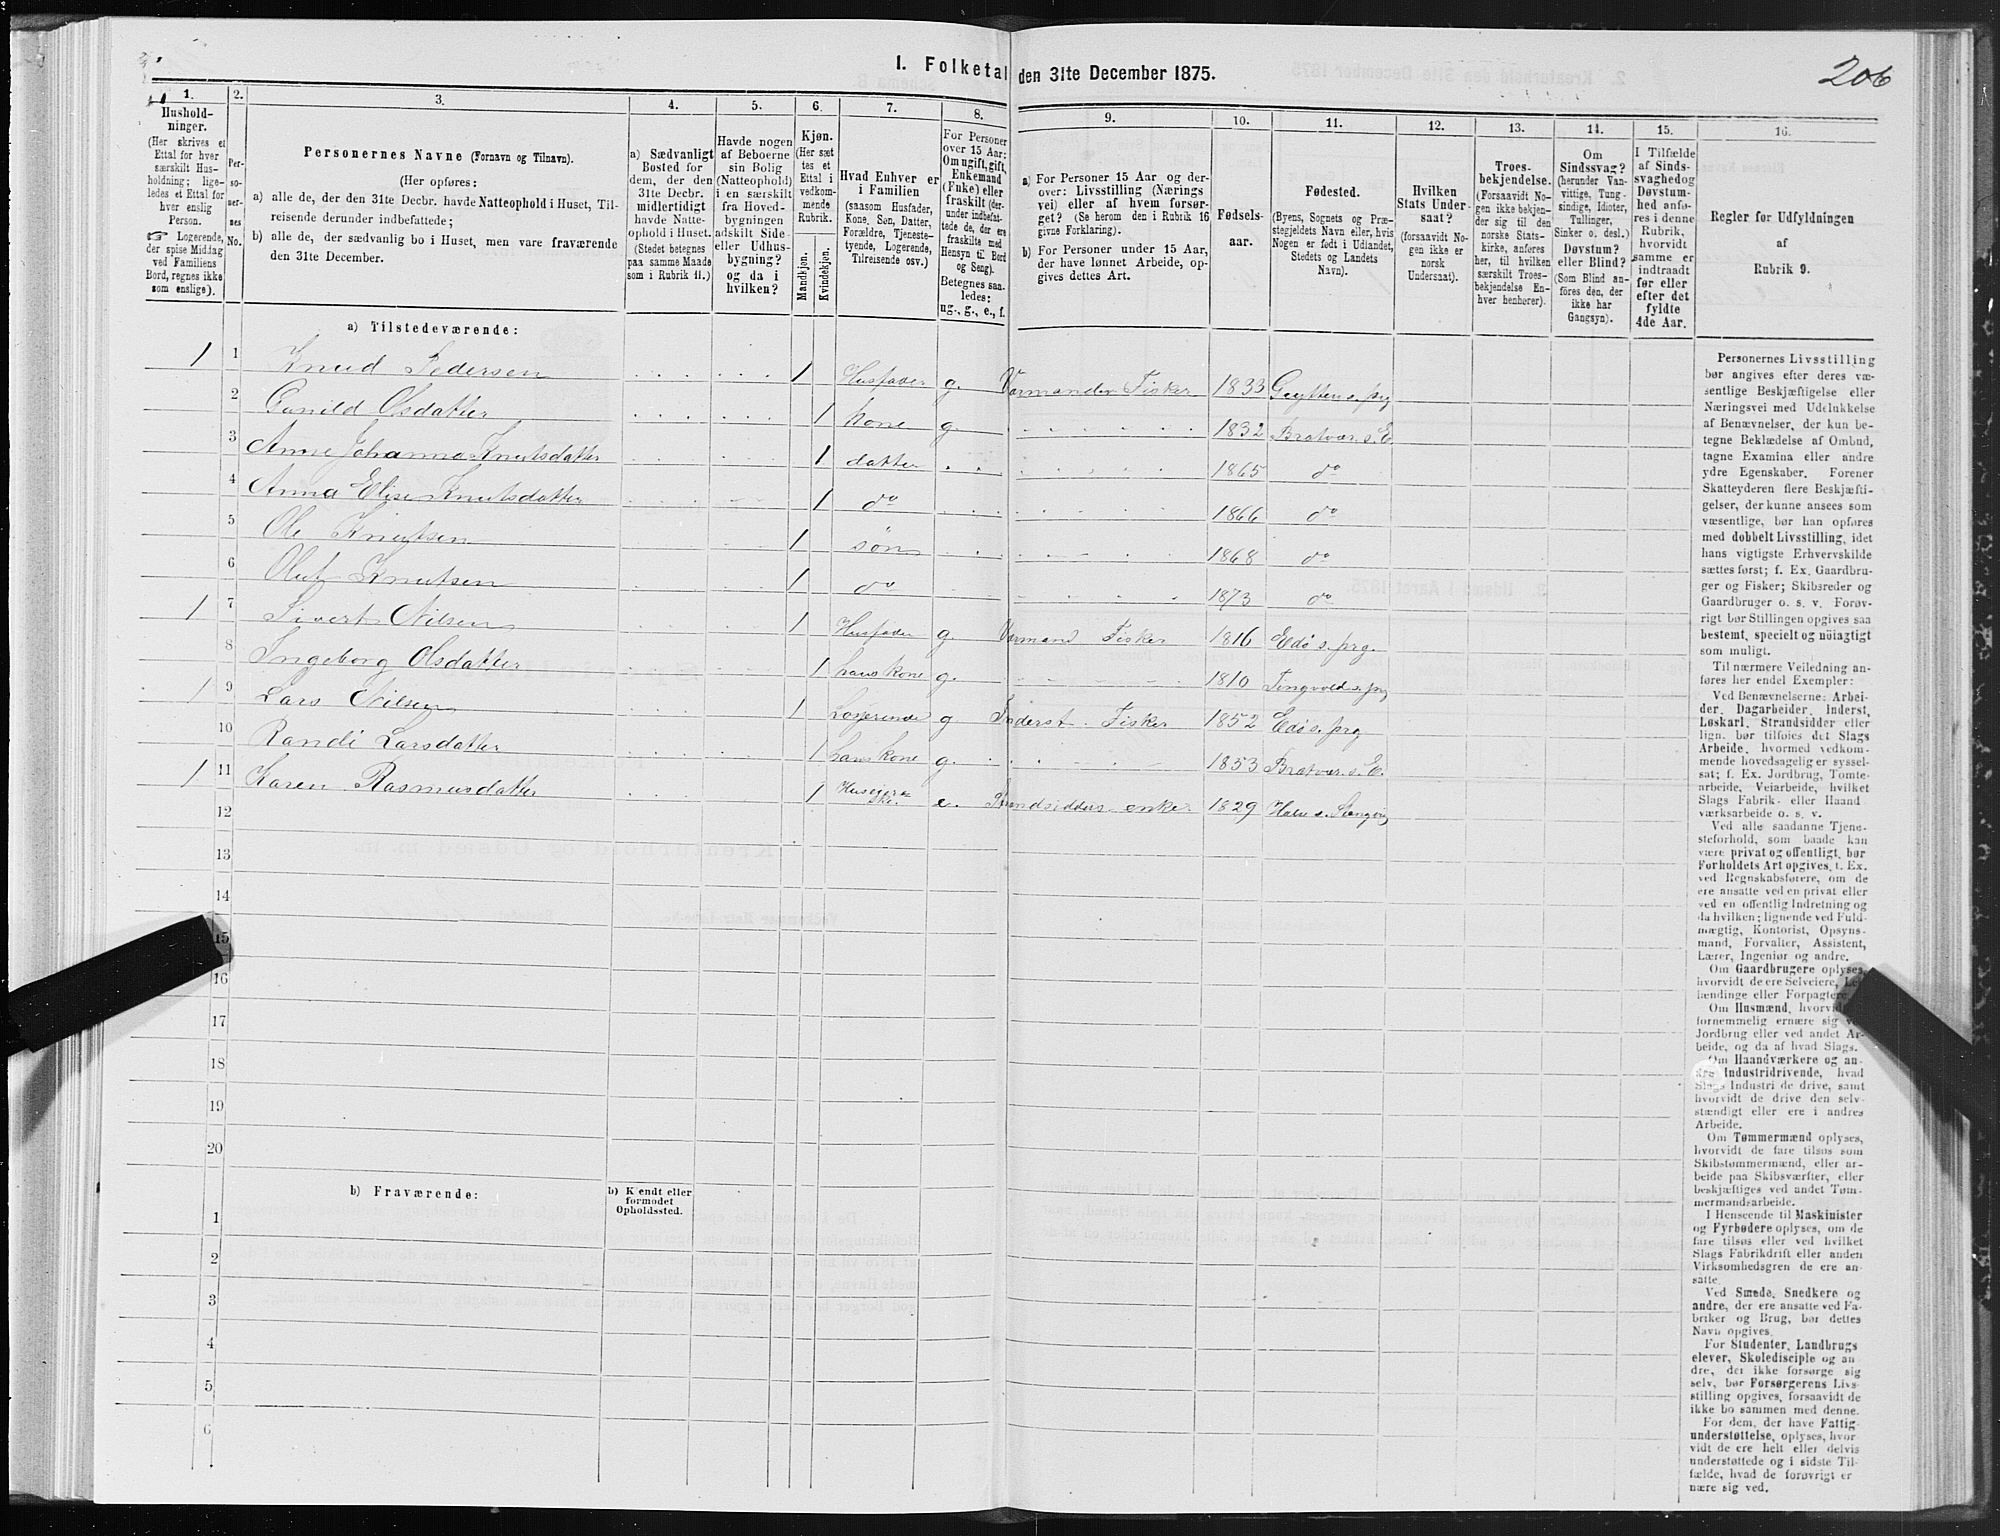 I. Folketal den 31te December 1875.
206
1.
Hushold-
ninger.
(Her skrives et
Ettal for hver
særskilt Hus-
holdning; lige-
ledes et Ettal for
hver enslig
Person.
☞ Logerende,
der spise Middag
ved Familiens
Bord, regnes ikke
som enslige).
2.
Per-
so-
ner-
nes
No.
3.
Personernes Navne (Fornavn og Tilnavn).
(Her opføres:
a) alle de, der den 31te Decbr. havde Natteophold i Huset, Til-
reisende derunder indbefattede;
b) alle de, der sædvanlig bo i Huset, men vare fraværende
den 31te December.
4.
a) Sædvanligt
Bosted for
dem, der den
31te Decbr.
midlertidigt
havde Natte-
ophold i Huset.
(Stedet betegnes
paa samme Maade
som i Rubrik 11.)
5.
Havde nogen
af Beboerne
sin Bolig
(Natteophold)
i en særskilt
fra Hoved-
bygningen
adskilt Side-
eller Udhus-
bygning?
og da i
hvilken?
6.
Kjøn.
(Her sæt
tes et
Ettal i
vedkom-
mende
Rubrik.
Mandkjøn.
Kvindekjøn.
7.
Hvad Enhver er
i Familien
(saasom Husfader,
Kone, Søn, Datter,
Forældre, Tjeneste-
tyende, Logerende,
Tilreisende osv.)
8.
For Personer
over 15 Aar:
Om ugift, gift,
Enkemand
(Enke) eller
fraskilt (der-
under indbefat-
tede de, der ere
fraskilte med
Hensyn til Bord
og Seng).
Betegnes saa-
ledes:
ug-, g., e., f.
9.
a) For Personer 15 Aar og der-
over: Livsstilling (Nærings
vei) eller af hvem forsør-
get? (Se herom den i Rubrik 16
givne Forklaring).
b) For Personer under 15 Aar,
der have lønnet Arbeide, op-
gives dettes Art.
10.
Fødsels-
aar.
11.
Fødested.
(Byens, Sognets og Præ-
stegjeldets Navn eller, hvis
Nogen er født i Udlandet,
Stedets og Landets
Navn).
12.
Hvilken
Stats Under
saat?
(forsaavidt No-
gen ikke er
norsk
Undersaat).
13.
Troes-
bekjendelse.
(Forsaavidt No-
gen ikke bekjen-
der sig til den
norske Stats-
kirke, anføres
her, til hvilken
særskilt Troes-
bekjendelse En-
hver henhører).
14.
Om
Sindssvag?
(herunder Van-
vittige, Tung-
sindige, Idioter,
Tullinger,
Sinker o. desl.)
Døvstum?
eller Blind?
(Som Blind an-
føres den, der
ikke har
Gangsyn).
15.
I Tilfælde
af Sinds-
svaghed og
Døvstum-
hed anfø-
res i denne
Rubrik,
hvorvidt
samme er
indtraadt
før eller
efter det
fyldte
4de Aar.
16.
Regler før Udfyldningen
af
Rubrik 9.
a) Tilstedeværende:
1 1 Knud Pedersen 1 Husfader g. Vormand Fisker 1833 Grytten s. prg
2 Gunild Olsdatter 1 kone g. 1832 Bratvær s. E
3 Anne Johanna Knutsdatter 1 datter 1865 do
4 Anna Elise Knutsdatter 1 do 1866 do
5 Ole Knutsen 1 søn 1868 do
6 Oluf Knutsen 1 do 1873 do
1 7 Sivert Nilsen 1 Husfader g. Vormand Fisker 1816 Edö s. prg.
8 Ingeborg Olsdatter 1 hans kone g. 1810 Tingvold s. prg
1 9 Lars Nilsen 1 Logerende g Inderst. Fisker 1852 Edö s. prg
10 Randi Larsdatter 1 hans kone g. 1853 Bratvær s. E.
1 11 Karen Rasmusdatter 1 e. Strandsidders enke 1829
12
13
14
15
16
17
18
19
20
b) Fraværende:
b) Kendt eller
formodet
Opholdssted.
1
2
3
4
5
6
Personernes Livsstilling
bør angives efter deres væ-
sentlige Beskjæftigelse eller
Næringsvei med Udelukkelse
af Benævnelser, der kun be-
tegne Beklædelse af Ombud,
tagne Examina eller andre
ydre Egenskaber. Forener
Skatteyderen flere Beskjæfti-
gelser, der kunne ansees som
væsentlige, bør han opføres
med dobbelt Livsstilling, idet
hans vigtigste Erhvervskilde
sættes først; f. Ex. Gaardbru-
ger og Fisker; Skibsreder og
Gaardbruger o. s. v. Forøv-
rigt bør Stillingen opgives saa
bestemt, specielt og nöiagtigt
som muligt.
Til nærmere Veiledning an-
føres her endel Exempler:
Ved Benævnelserne: Arbei-
der, Dagarbeider, Inderst,
Løskarl, Strandsidder eller
lign. bør tilføies det Slags
Arbeide, hvormed vedkom-
mende hovedsagelig er syssel-
sat; f. Ex. Jordbrug, Tomte-
arbeide, Veiarbeide, hvilket
Slags Fabrik- eller Haand
værksarbeide o. s. v.
Ved alle saadanne Tjene-
steforhold, som baade kan
være privat og offentligt, bør
Forholdets Art opgives, t. Ex.
ved Regnskabsførere, om de
ere ansatte ved en privat eller
ved en offentlig Indretning og
da hvilken; lignende ved Fuld-
mægtig, Kontorist, Opsyns-
mand, Forvalter, Assistent,
Lærer, Ingeniør og andre.
Om Gaardbrugere oplyses,
hvorvidt de ere Selveiere, Lei-
lændinge eller Forpagtere.
Om Husmænd, hvorvidt
fornemmelig ernære sig ved
Jordbrug eller ved andet Ar-
beide, og da af hvad Slags.
Om Haandværkere og an-
dre Industridrivende, hvad
Slags Industri de drive, samt
hvorvidt de drive den selv-
stændigt eller ere i andres
Arbeide.
Om Tømmermænd oplyses,
hvorvidt de fare tilsøs som
Skibstømmermænd, eller ar-
beide paa Skibsværfter, eller
beskjæftiges ved andet Tøm-
mermandsarbeide.
I Henseende til Maskinister
og Fyrbødere oplyses, om de
fare tilsøs eller ved hvilket
Slags Fabrikdrift eller anden
Virksomhedsgren de ere an-
satte.
Ved Smede, Snedkere og
andre, der ere ansatte ved Fa-
briker og Brug, bør dettes
Navn opgives.
For Studenter, Landbrugs
elever, Skoledisciple og an-
dre, der ikke forsørge sig
selv, bør Forsørgerens Livs-
stilling opgives, forsaavidt de
ikke bo sammen med denne.
For dem, der have Fattig-
understøttelse, oplyses, hvor-
vidt de ere helt eller delvis
understøttede og i sidste Til-
fælde, hvad de forøvrigt er
nære sig ved.